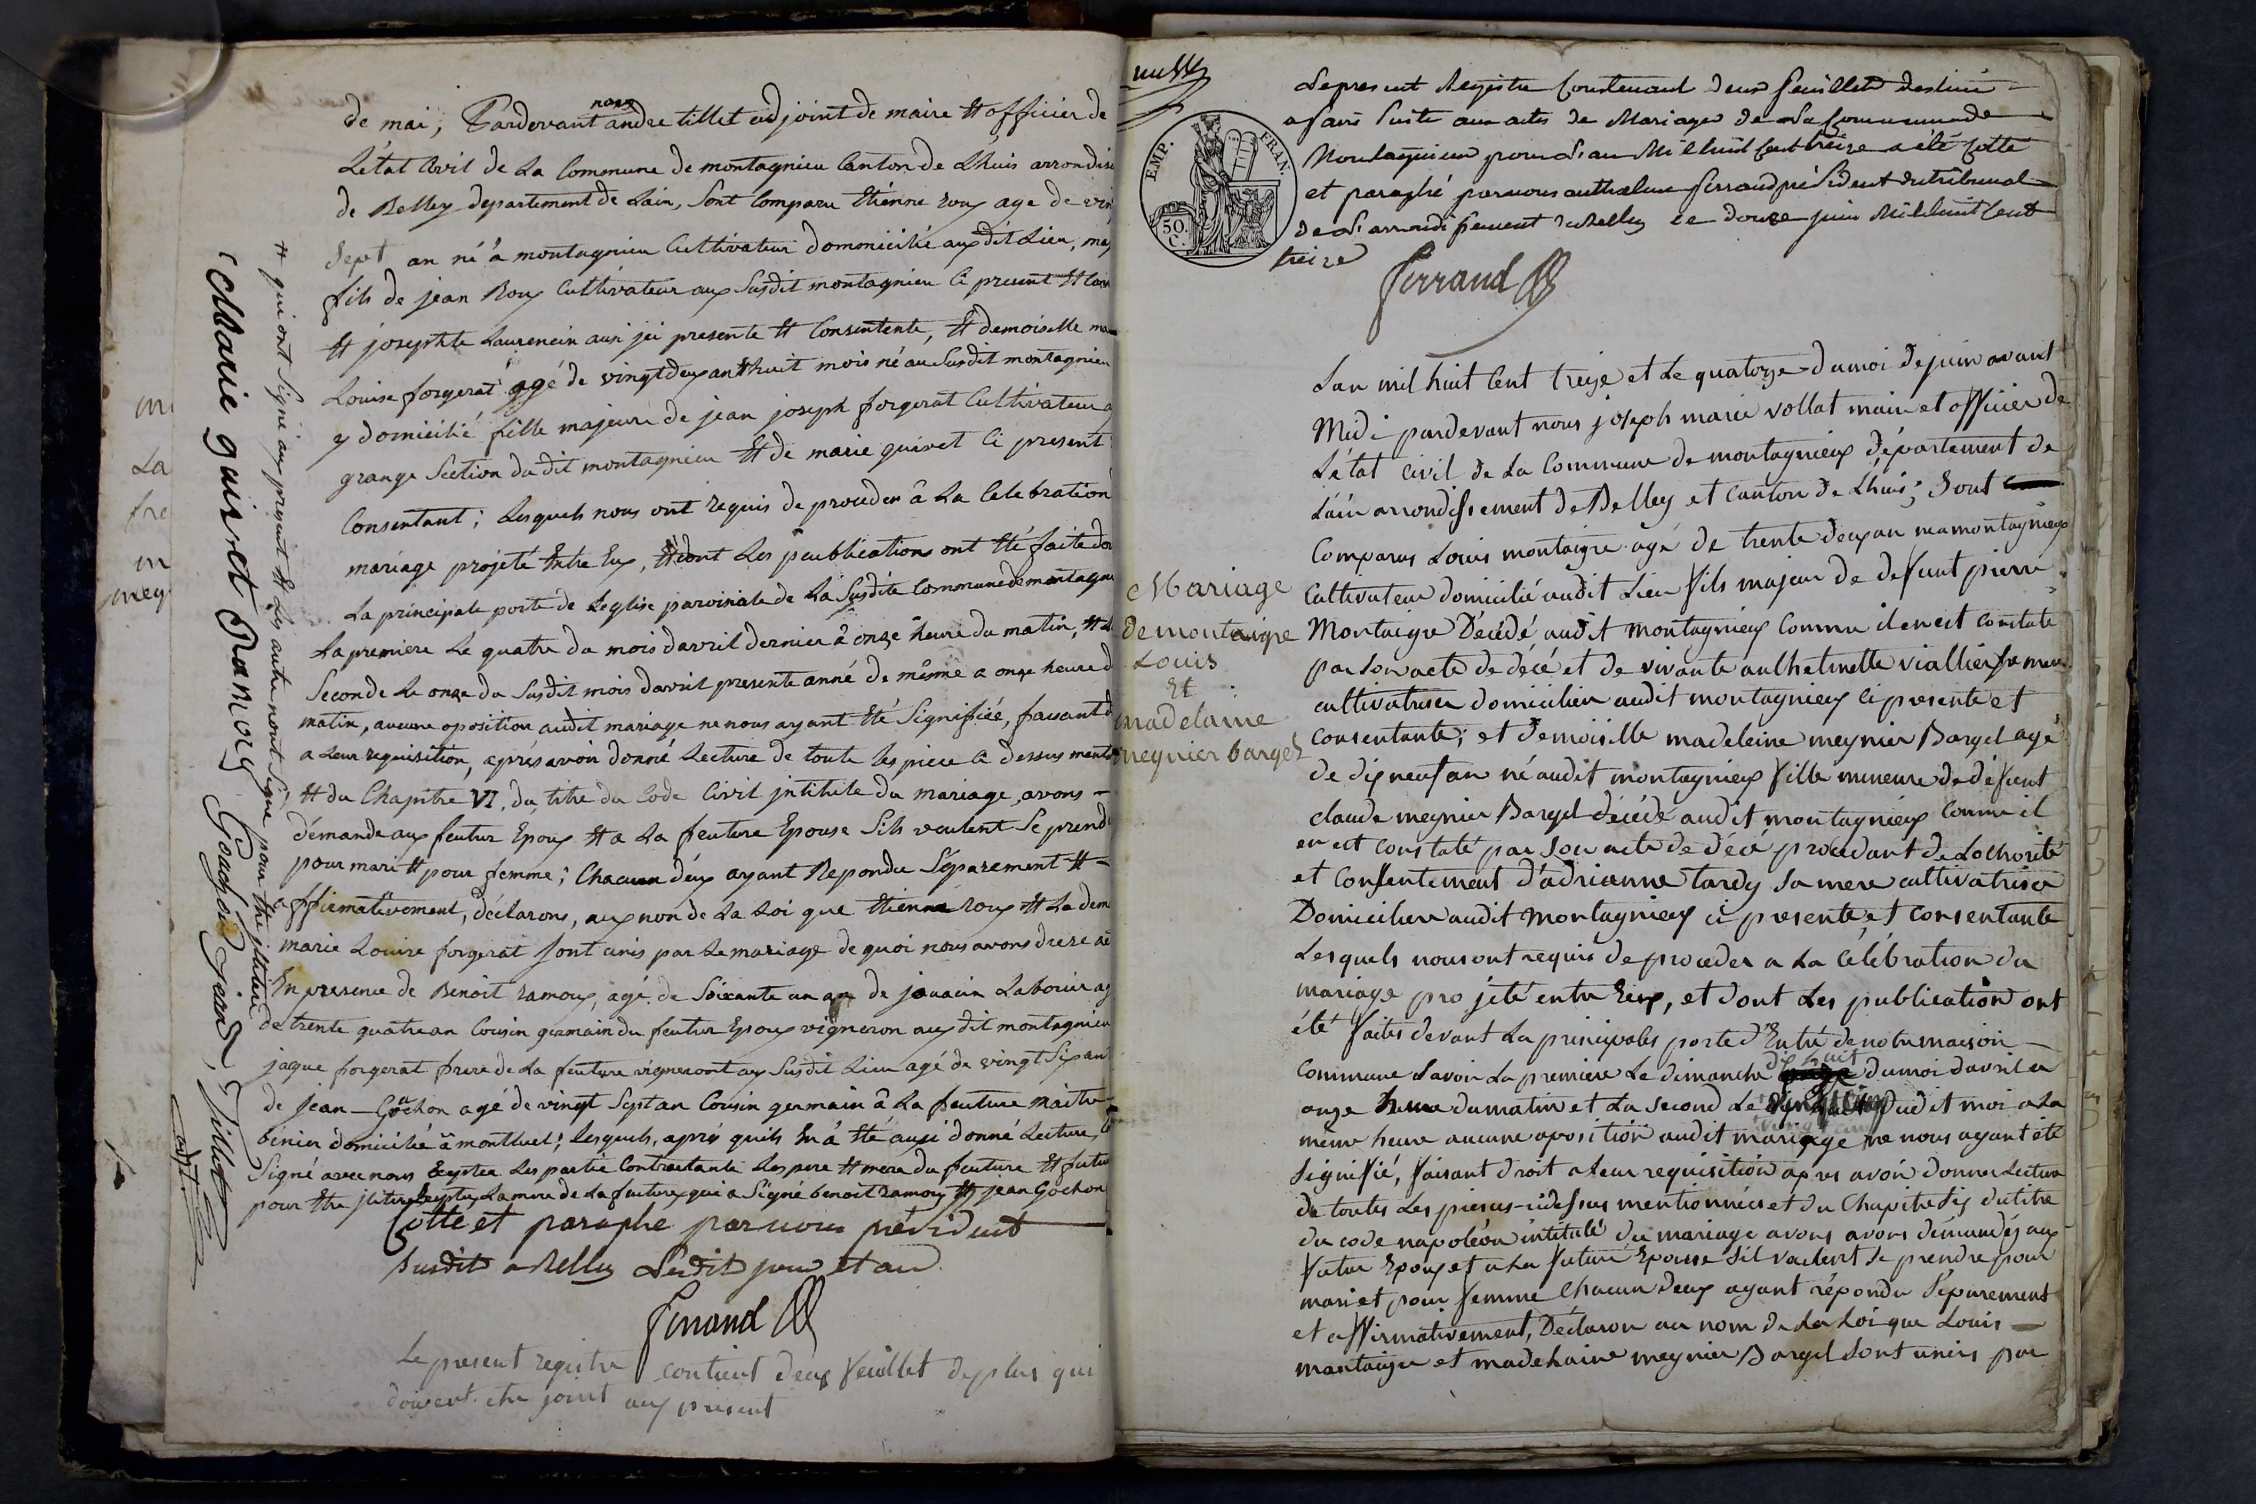 de mai, Pardevant nous andre tillet adjoint de maire et officier de
Létat Civil de La Commune de montagnieu Canton de Lhuis arrondis
de Belley departement de Lain, Sont Comparu Etiénne roux age de vin
Sept an né à montagnieu Cultivateur dommicilié aux dit Lieu, maj
fils de jean Roux Cultivateur aux Susdit montagnieu Ci present et Con
et josephte Laurencin ausi jci presente et Consentente, et demoiselle ma
Louise forgerat agé de vingt deux an et huit mois né au Susdit montagnieu
y domicilié fille majeure de jean joseph forgerat Cultivateur a
grange Section du dit montagnieu et de marie guinet Ci present
Consentant; Lesquels nous ont requis de proceder à La Celebration
mariage projeté Entre Eux, et dont Les publications ont Eté faite dev
La principale porte de Leglise paroisiale de La Susdite Commune de montagnie
La premiere Le quatre du mois davril dernier à onze heure du matin, et L
Seconde Le onze du Susdit mois davril presente anné de même a onze heure d
matin, aucune oposition audit mariage ne nous ayant Eté Signifiéé, faisant d
a Leur requisition, aprés avoir donné Lecture de toute Les piece Ci dessus ment
et du Chapitre VI, du titre du Code Civil jntitule du mariage, avons
démande aux feutur Epoux et a La feuture Epouse Sils veulent Se prend
pour mari et pour femme; Chacun deux ayant Repondu Séparement et
affirmativement, déclarons, aux non de La Loi que Etiénne roux et La dem
marie Louise forgerat Sont unis par Le mariage de quoi nous avons drese ac
En presence de Benoit ramoux, agé de Soixante un an de joacin Labouir ag
de trente quatre an Cousin germain du feutur Epoux vigneron aux dit montagnieu
jaque forgerat frere de La feuture vigneront aux Susdit Lieu agé de vingt Six an
de jean Göchon agé de vingt Sept an Cousin germain à La feuture maitre
bénier domicilié à montluel; Lesquels, aprés quils En a Eté ausi donné Lecture,
Signé avec nous Exepter Les partie Contractante Les pere et mere du feuture et futur
pour Etre jliteré Exepter La mere de La future qui a Signé benoit ramoux et jean Gochon
et qui ont Signé aux present et Les autre nont Signe pour Etre jlitéré
Marie guinet Ramoux Gauchon jean Tillet
adjt
Cotté et paraphe par nous président
Susdit a Belley Ledit jour et an
Ferrand
Le present registre contient deux feuillet deplus qui
doivent etre joint aux present
EMP. FRAN.
50. C.
Le present Registre Contenant deux feuillets destiné
afaire Suite aux actes de Mariages de La Commune de
Montagnieu pour L'an Mil huit Cent treize a été Cotté
et paraphé par nous anthelme ferrand président du tribunal
de L'arrondissement de Belley ce douze juin Mil huit Cent
treize
Ferrand
Mariage
de montaigre
Louis
Et
madelaine
meynier barget
Lan mil huit Cent treize et Le quatorze du moi de juin avant
Midi pardevant nous joseph marie vollat maire et officier de
Létat civil de La Commune de montagnieux département de
Lain arrondissement de Belley et canton de Lhuis; Sont
Comparus Louis montaigre agé de trente deux an ne a montagnieux
Cultivateur domicilié audit Lieu fils majeur de defunt pierre
Montaigre Décédé audit montagnieux comme il en est constaté
par Son acte de décé et de vivante anthelmette viallier Sa mere
cultivatrise domicilieé audit montagnieux ci presente et
consentante; et demoiselle madeleine meynier Barget agé
de dix neuf an né audit montagnieux fille mineure de défunt
claude meynier Barget décédé audit montagnieux Comme il
en est constaté par Son acte de décé procedant de Lothorité
et Consentement d'adrianne tardy Sa mere cultivatrise
Domicilieé audit Montagnieux ci presente, et consentante
Lesquels nous ont requis de proceder a La Célébration du
mariage projeté entre Eux, et dont Les publication ont
été faites devant La principales porte d'Entré de notre maison
Commune Savoir La premiere Le dimanche dix huit du moi davril a
onze heure du matin et La Second Le vingt cinq dudit moi a La
même heure aucune oposition audit mariage ne nous ayant été
signifié, faisant droit a Leur requisition apres avoir donner Lecture
de toutes Les pieces cidessus mentionnées et du Chapitre six du titre
du code napoléon intitulé du mariage avons avons démandés aux
futur Epoux et a La future Epouse Sil vaulent Se prendre pour
mari et pour femme Chacun deux ayant répondu Séparement
et affirmativement, Déclaron au nom de La Loi que Louis
montaigre et madelaine meynier Barget Sont unirs par